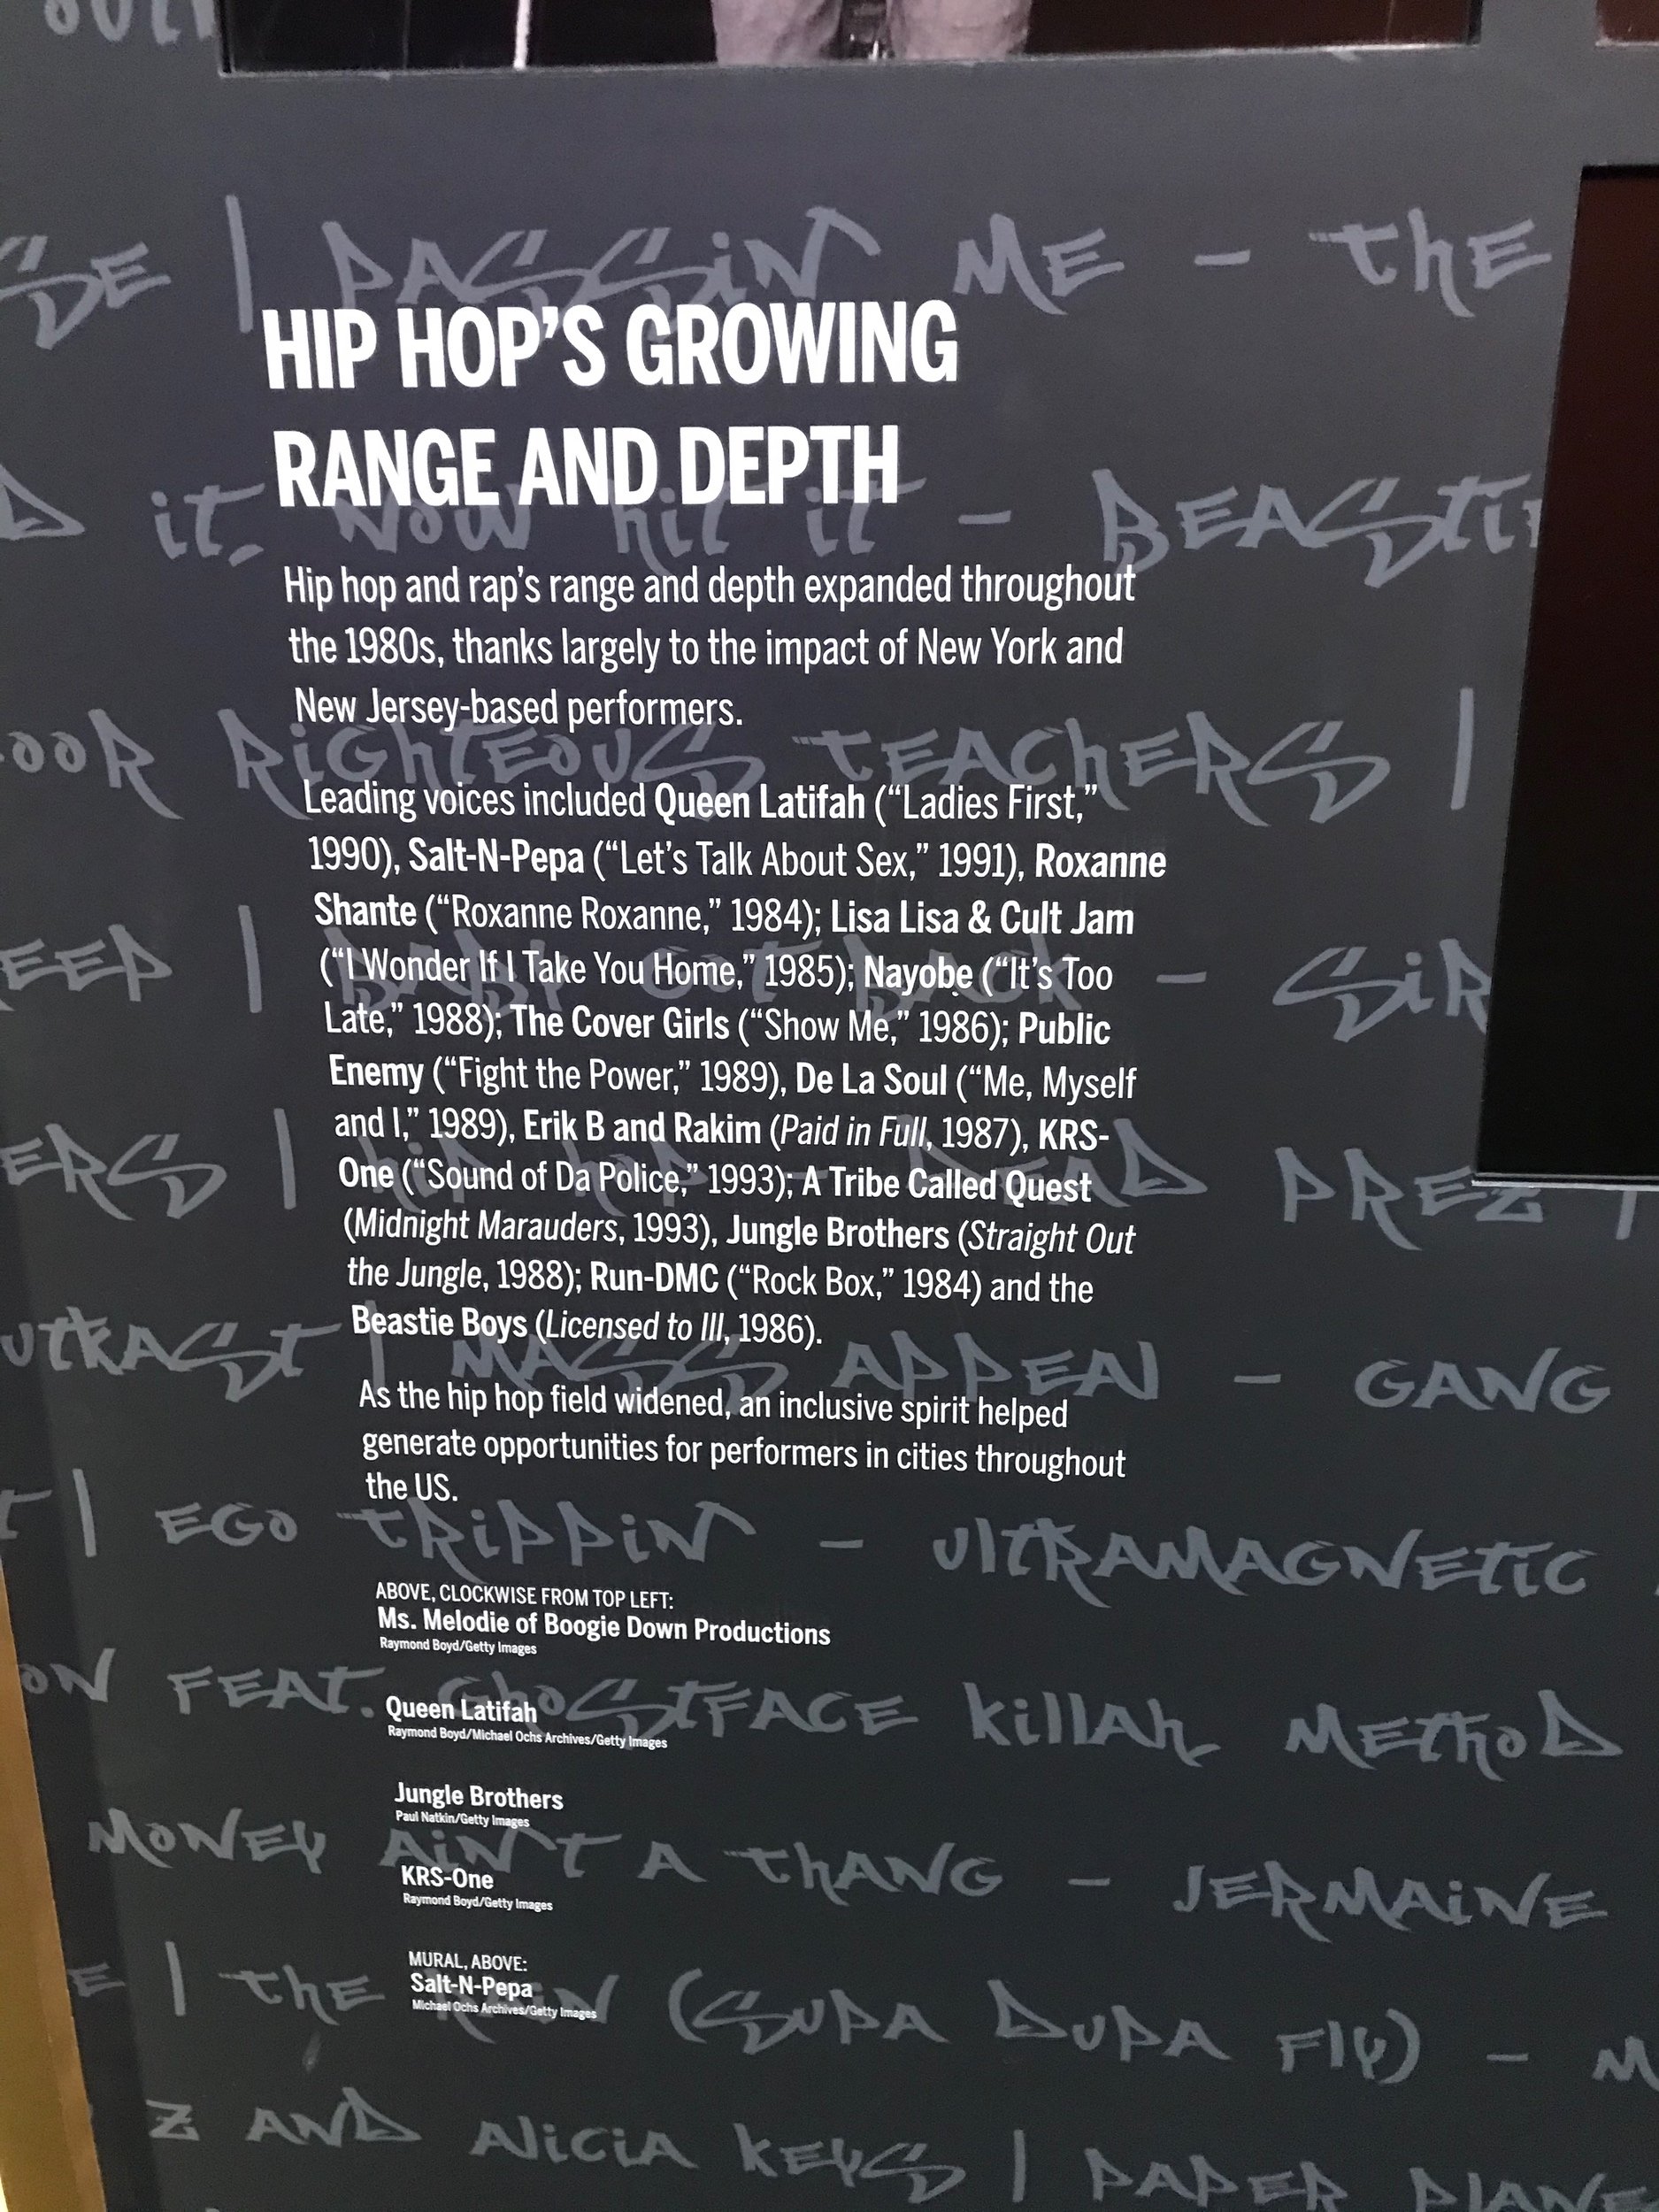 SE | PASSIN ME - thE
HIP HOP'S GROWING
RANGE AND DEPTH
it, NOW hit it - BEASTIE
Hip hop and rap's range and depth expanded throughout
the 1980s, thanks largely to the impact of New York and
New Jersey-based performers.
OOR RiGhTEOUS TEAChERS |
Leading voices included Queen Latifah (“Ladies First,”
1990), Salt-N-Pepa (“Let's Talk About Sex,” 1991), Roxanne
Shante (“Roxanne Roxanne,” 1984); Lisa Lisa & Cult Jam
EEP | BABY GOT BACK - SiR
(“I Wonder If I Take You Home,” 1985); Nayobe (“It's Too
Late,” 1988); The Cover Girls (“Show Me,” 1986); Public
Enemy (“Fight the Power,” 1989), De La Soul (“Me, Myself
and I,” 1989), Erik B and Rakim (Paid in Full, 1987), KRS-
ERS | hip hop - DEAD PREZ |
One (“Sound of Da Police,” 1993); A Tribe Called Quest
(Midnight Marauders, 1993), Jungle Brothers (Straight Out
the Jungle, 1988); Run-DMC (“Rock Box,” 1984) and the
Beastie Boys (Licensed to Ill, 1986).
UTKAST | MASS APPEAl - GANG
As the hip hop field widened, an inclusive spirit helped
generate opportunities for performers in cities throughout
the US.
| EGO TRiPPiN - UlTRAMAGNETiC
ABOVE, CLOCKWISE FROM TOP LEFT:
Ms. Melodie of Boogie Down Productions
Raymond Boyd/Getty Images
ON FEAT. GhOSTFACE killAh METhOD
Queen Latifah
Raymond Boyd/Michael Ochs Archives/Getty Images
Jungle Brothers
Paul Natkin/Getty Images
MONEY AiN'T A ThANG - JERMAiNE
KRS-One
Raymond Boyd/Getty Images
MURAL, ABOVE:
Salt-N-Pepa
Michael Ochs Archives/Getty Images
E | thE RAiN (SUPA DUPA FlY) - M
Z AND AliCiA kEYS | PAPER PlANE